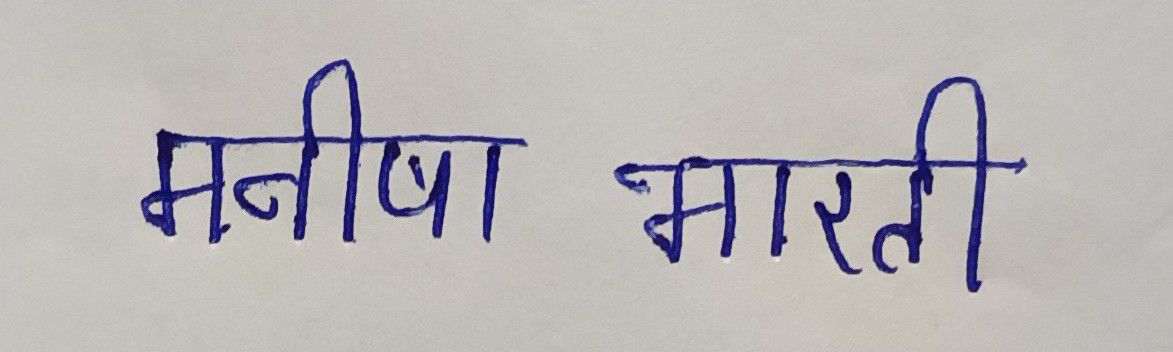 मनीषा भारती